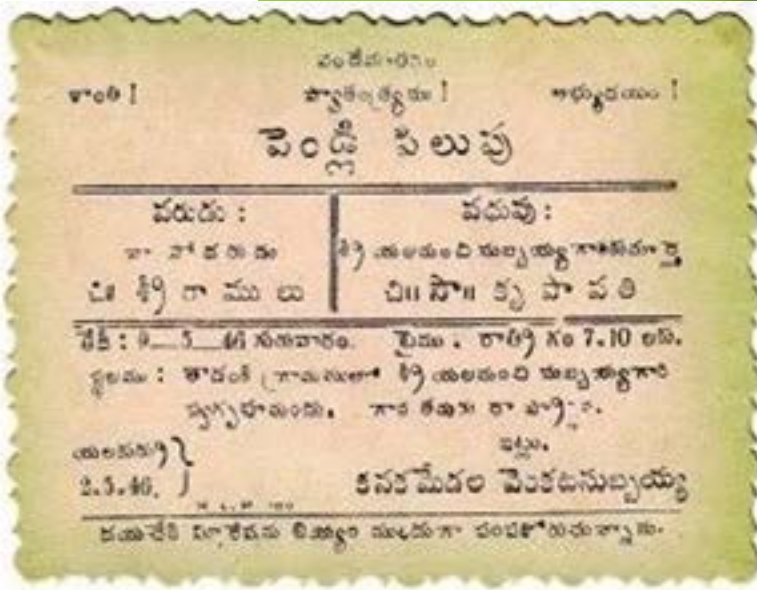 వందేమాతరం
శాంతి ! స్వాతంత్ర్యము ! అభ్యుదయం !
పెండ్లి పిలుపు
వరుడు :
నా సోదరుడు
చి॥ శ్రీ రా ము లు
వధువు :
శ్రీ యలమంచి సుబ్బయ్యగారికుమార్తె
చి॥ సౌ॥ కృ పా వ తి
తేదీ : 9_5_46 గురువారం. టైము : రాత్రి గం 7.10 లకు.
స్థలము : తాడంకి గ్రామములో శ్రీ యలమంచి సుబ్బయ్యగారి
స్వగృహమందు. గాన తమరు రా ప్రార్థన.
యలకుర్రు
2.5.46.
ఇట్లు.
కనకమేడల వెంకటసుబ్బయ్య
దయచేసి మీ ముందుగా పంపకోరుచున్నాను.